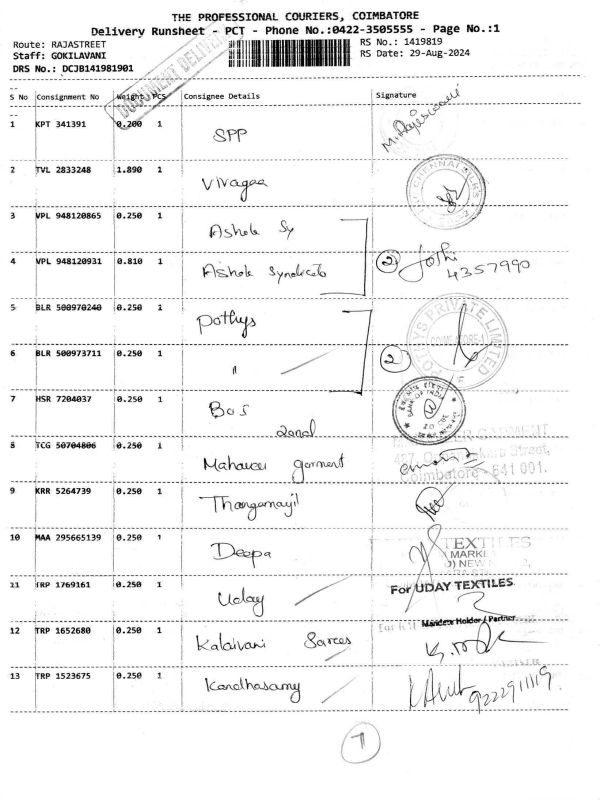 THE PROFESSIONAL COURIERS, COIMBATORE
Delivery Runsheet - PCT - Phone No.:0422-3505555 - Page No.:1
Route: RAJASTREET
RS No.: 1419819
Staff: GOKILAVANI
RS Date: 29-Aug-2024
DRS No.: DCJB141981901
DOCUMENT DELIVERED
S No Consignment No Weight PCS Consignee Details Signature
1 KPT 341391 0.200 1 SPP
2 TVL 2833248 1.890 1 Vivagaa CHENNAI SILKS
3 VPL 948120865 0.250 1 Ashok Sy
4 VPL 948120931 0.810 1 Ashok Syndicate 2 Joshi
4357990
5 BLR 500970240 0.250 1 Pothys POTHYS PRIVATE LIMITED
6 BLR 500973711 0.250 1 " 2
7 HSR 7204037 0.250 1 BOI BANK OF INDIA
Zonal
8 TCG 50704806 0.250 1 Mahaveer garment GARMENT
Street,
Coimbatore - 641 001.
9 KRR 5264739 0.250 1 Thangamayil
10 MAA 295665139 0.250 1 Deepa TEXTILES
MARKE
NEW
11 TRP 1769161 0.250 1 Uday For UDAY TEXTILES
Mandate Holder / Partner
12 TRP 1652680 0.250 1 Kalaivani Sarees
13 TRP 1523675 0.250 1 Kandhasamy 9222911119
7